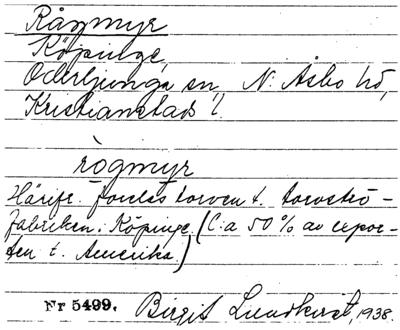 Rågmyr
Köpinge,
Oderljunga sn, N. Åsbo hd,
Kristianstads l.
rògmyr
Härifr. fordes torven t. torvströ-
fabriken i Köpinge. (C:a 50% av expor-
ten t. Amerika.)
Nr 5499. Birgit Lundkvist, 1938.